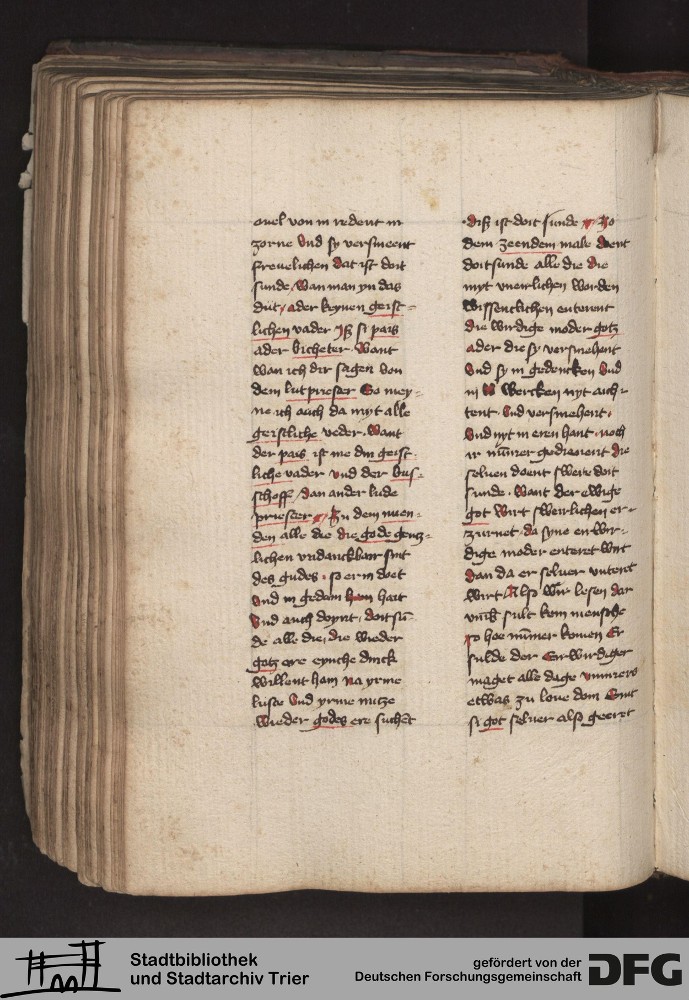 ouel von in redent in
zorne vnd sy versmeent
freuelichen dat ist doit
sunde / wan man yn das
dut / ader keynen geist-
lichen vader Jß si pais
ader bichteter. want
wan ich dir sagen von
dem lutpriester So mey-
ne ich auch da myt alle
geistliche veder. want
der pais ist me din geist
liche vader vnd der bus-
schoff / dan ander lude
priester Zu dem nuen-
den alle die die gode gentz-
lichen vndanckbair sint
des gudes so er in doet
vnd in gedain hait
vnd auch doynt / doit sun-
de alle die / die wieder
gotz ere eynche dinck
willent hain na yrme
luste vnd yrme nutze
wieder godes ere suchent
diß ist doit sunde Zo
dem zeendem male doent
doitsunde alle die die
myt vneirlichen worden
wissentlichen enterent
die wirdige moder gotz
ader die sy versmehent
vnd sy in gedencken vnd
in wercken nyt auch-
tent. vnd versmehent.
vnd nyt in eren hant. noch
ir nummer gedienent die
seluen doent swere doit
sunde. want der ewige
got wirt sweirlichen er-
zurnet. da syne enwir-
dige moder enteret wirt
dan da er seluer vnteret
wirt. Also wir lesen dar
vmb sult kein mensche
so hoe nummer komen Er
sulde der Erwirdiger
maget alle dage vmmers
etwas zu loue doin Sint
si got seluer also geeret
Stadtbibliothek
und Stadtarchiv Trier
gefördert von der
Deutschen Forschungsgemeinschaft
DFG